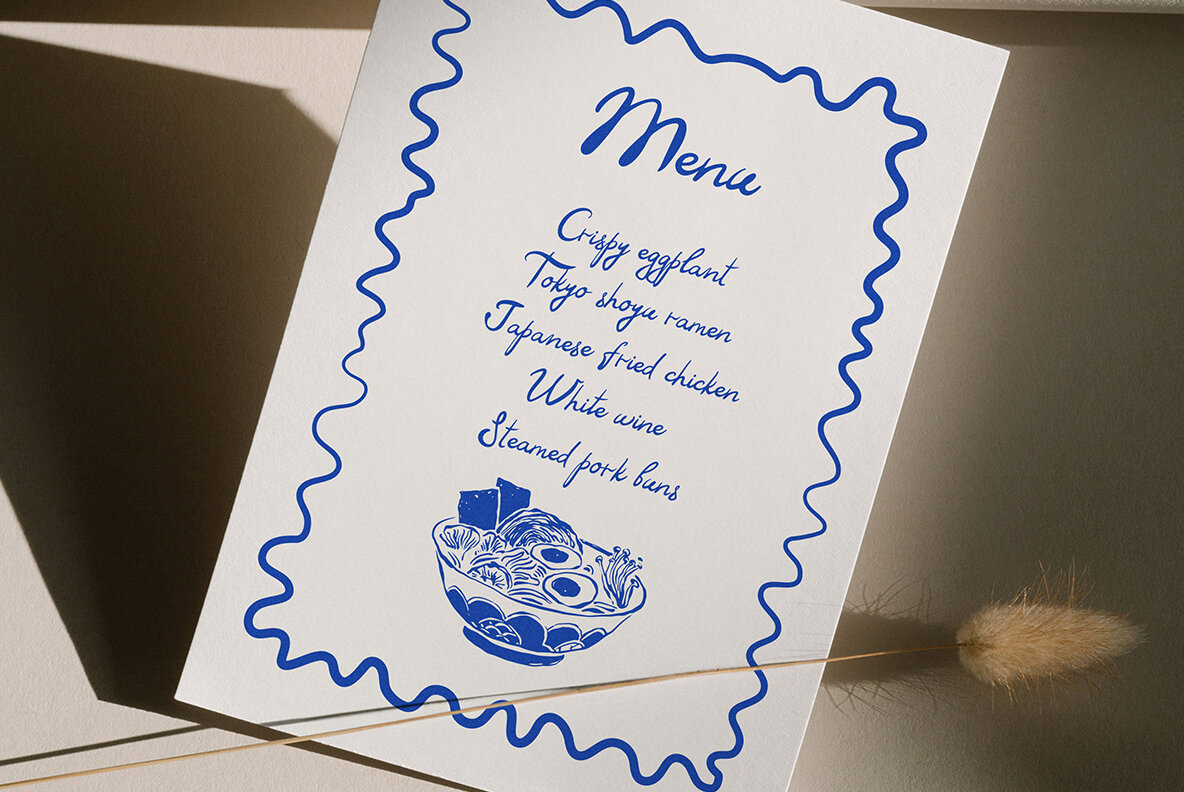 Menu
Crispy eggplant
Tokyo shoyu ramen
Japanese fried chicken
White wine
Steamed pork buns